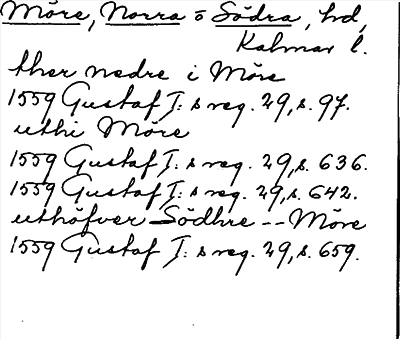 Möre, Norra o Södra, hd,
Kalmar l.
ther nedre i Möre
1559 Gustaf I: s reg. 29, s. 97.
uthi Möre
1559 Gustaf I: s reg. 29, s. 636.
1559 Gustaf I: s reg. 29, s. 642.
uthöfver Södhre -- Möre
1559 Gustaf I: s reg. 29, s. 659.